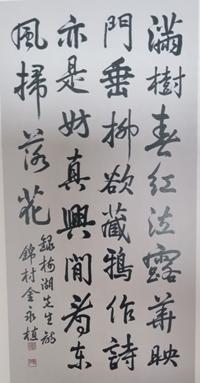 滿樹春紅泣露華映
門垂柳欲藏鴉作詩
亦是妨真興閒看東
風掃落花
錄梅湖先生詩
錦村金永植